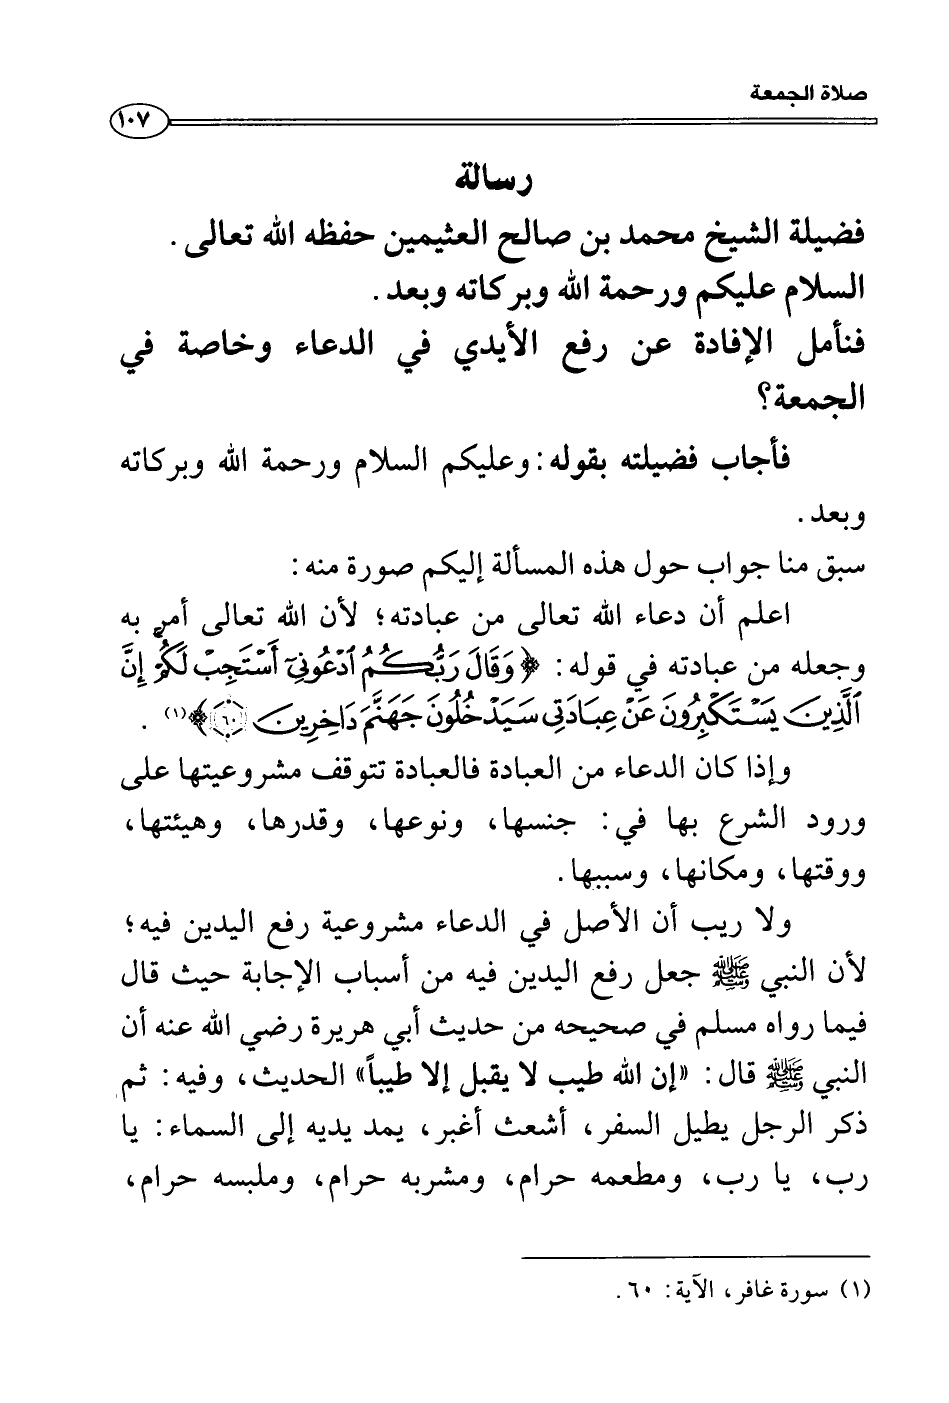 صلاة الجمعة
١٠٧
رسالة
فضيلة الشيخ محمد بن صالح العثيمين حفظه الله تعالى .
السلام عليكم ورحمة الله وبركاته وبعد .
فنأمل الإفادة عن رفع الأيدي في الدعاء وخاصة في
الجمعة؟
فأجاب فضيلته بقوله : وعليكم السلام ورحمة الله وبركاته
وبعد .
سبق منا جواب حول هذه المسألة إليكم صورة منه :
اعلم أن دعاء الله تعالى من عبادته؛ لأن الله تعالى أمر به
وجعله من عبادته في قوله : ﴿ وَقَالَ رَبُّكُمُ ادْعُونِي أَسْتَجِبْ لَكُمْ إِنَّ
الَّذِينَ يَسْتَكْبِرُونَ عَنْ عِبَادَتِي سَيَدْخُلُونَ جَهَنَّمَ دَاخِرِينَ ٦٠﴾(١) .
وإذا كان الدعاء من العبادة فالعبادة تتوقف مشروعيتها على
ورود الشرع بها في : جنسها، ونوعها، وقدرها، وهيئتها،
ووقتها، ومكانها، وسببها .
ولا ريب أن الأصل في الدعاء مشروعية رفع اليدين فيه؛
لأن النبي ﷺ جعل رفع اليدين فيه من أسباب الإجابة حيث قال
فيما رواه مسلم في صحيحه من حديث أبي هريرة رضي الله عنه أن
النبي ﷺ قال : «إن الله طيب لا يقبل إلا طيباً» الحديث، وفيه : ثم
ذكر الرجل يطيل السفر، أشعث أغبر، يمد يديه إلى السماء : يا
رب، يا رب، ومطعمه حرام، ومشربه حرام، وملبسه حرام،
(١) سورة غافر، الآية : ٦٠ .